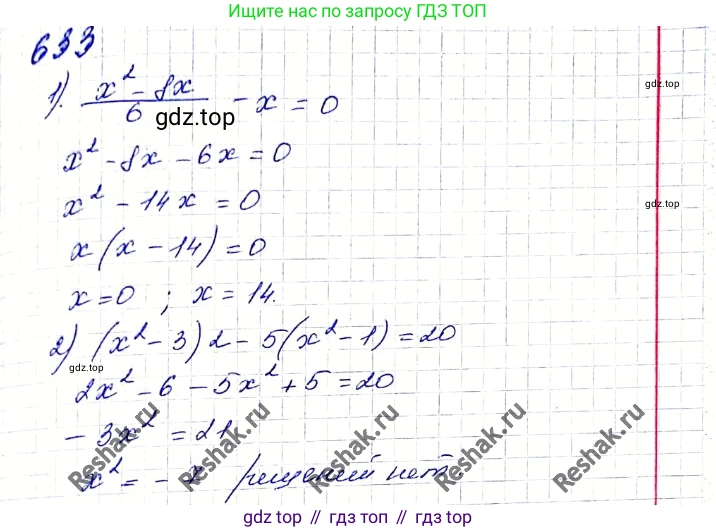 Ищите нас по запросу ГДЗ ТОП
633
1). (x² - 8x)/6 - x = 0
gdz.top
gdz.top
x² - 8x - 6x = 0
x² - 14x = 0
gdz.top
x(x - 14) = 0
x = 0 ; x = 14.
2) (x² - 3)2 - 5(x² - 1) = 20
gdz.top
gdz.top
2x² - 6 - 5x² + 5 = 20
- 3x² = 21
x² = - 7 решений нет.
Reshak.ru
Reshak.ru
Reshak.ru
Reshak.ru
gdz top // гдз топ // gdz.top